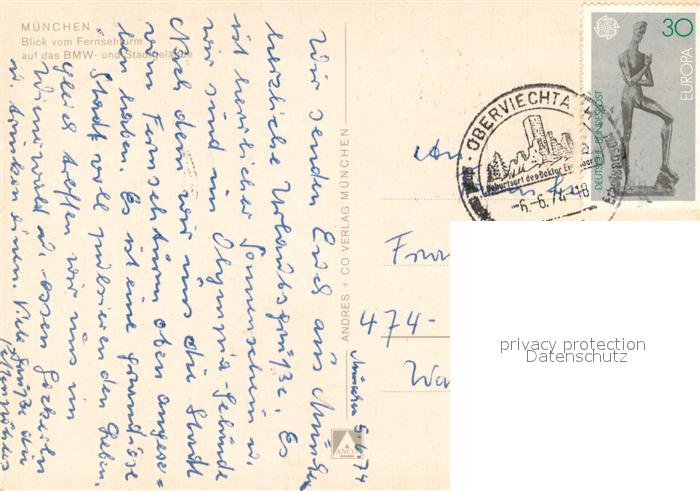 MÜNCHEN
Blick vom Fernsehturm
auf das BMW- und Stadtgelände
Wir senden Euch aus München
herzliche Urlaubsgrüße. Es
ist herrlicher Sonnenschein u.
wir sind im Olympia-Gelände
Nach dem wir uns die Stadt
vom Fernsehturm oben angese=
hen haben. Es ist eine grandiose
Stadt voll pulsierenden Leben.
Gleich treffen wir uns im
u. essen
u. trinken einen. Viele Grüße
München 5.6.74
ANDRES + CO VERLAG MÜNCHEN
ANCO
An
474-
OBERVIECHTA
Geburtsort des Doktor Eisenbart
-6.-6.74-18
30
EUROPA
DEUTSCHE BUNDESPOST
privacy protection
Datenschutz